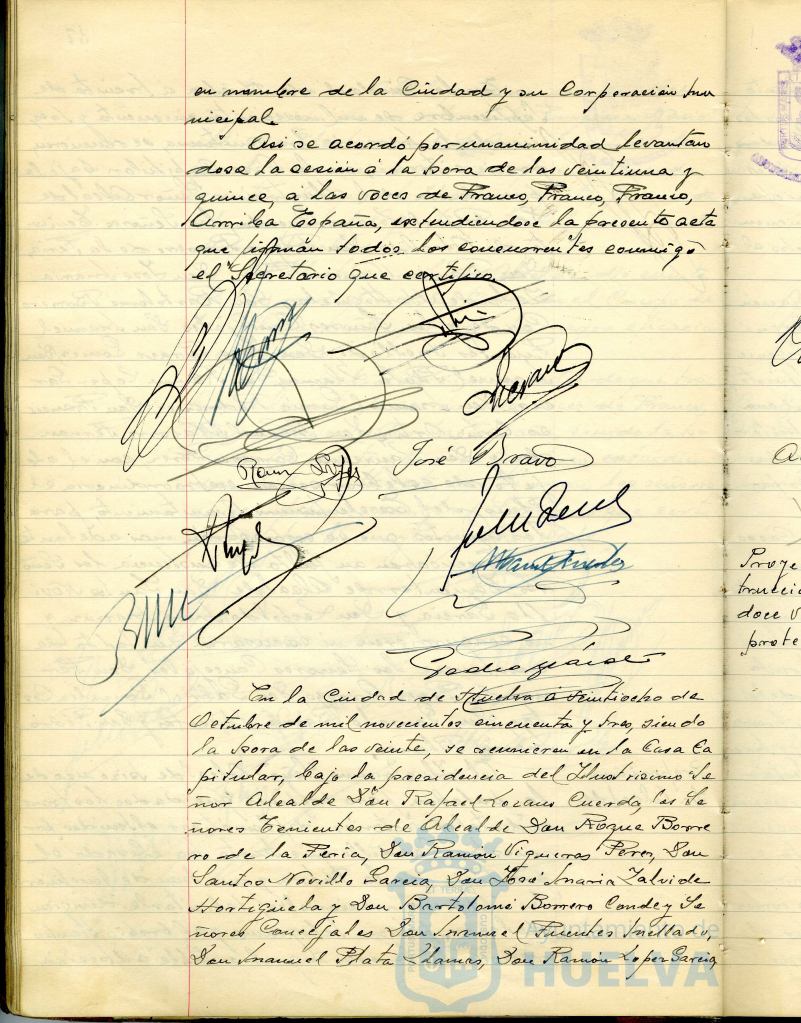 en nombre de la Ciudad y su Corporación Mu
nicipal.
Asi se acordó por unanimidad levantan
dose la sesión á la hora de las veintiuna y
quince, a las voces de Franco, Franco, Franco,
Arriba España, extendiendose la presente acta
que firman todos los concurrentes conmigo
el Secretario que certifico.
José Bravo
Ramon López
Pedro
En la Ciudad de Huelva á veintiocho de
Octubre de mil novecientos cincuenta y tres, siendo
la hora de las veinte, se reunieron en la Casa Ca
pitular, bajo la presidencia del Ilustrisimo Se
ñor Alcalde Don Rafael Lozano Cuerda, los Se
ñores Tenientes de Alcalde Don Roque Borre
ro de la Feria, Don Ramón Vigueras Perez, Don
Santos Novillo Garcia, Don José Maria Talvide
Hortigüela y Don Bartolomé Borrero Conde y Se
ñores Concejales Don Manuel Fuentes Mellado,
Don Manuel Plata Llamas, Don Ramón Lopez Garcia,
Ayuntamiento de
HUELVA
Proye
trucció
doce v
prote